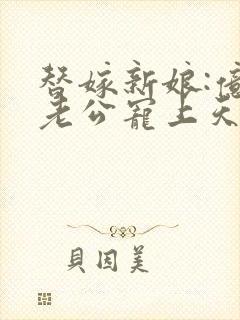 替嫁新娘:億
老公寵上天
貝因美